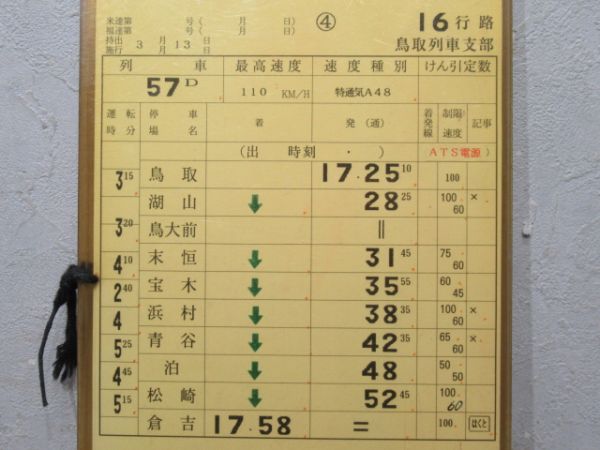 米達第 号( 月 日) ④ 16行路
福達第 号( 月 日) 鳥取列車支部
持出 月 日
施行 3月13日
列車 最高速度 速度種別 けん引定数
57D 110 KM/H 特通気A48
運転時分 停車場名 着 発(通) 着発線 制限速度 記事
(出 時刻 ・ ) (ATS電源)
鳥取 17・25 10 100
3 15
湖山 ↓ 28 25 100 60 ×
鳥大前 ||
3 20
末恒 ↓ 31 45 75 60
4 10
宝木 ↓ 35 55 60 45
2 40
浜村 ↓ 38 35 100 60 ×
4
青谷 ↓ 42 35 65 60 ×
5 25
泊 ↓ 48 50 50
4 45
松崎 ↓ 52 45 100 60
5 15
倉吉 17・58 = 100 はくと